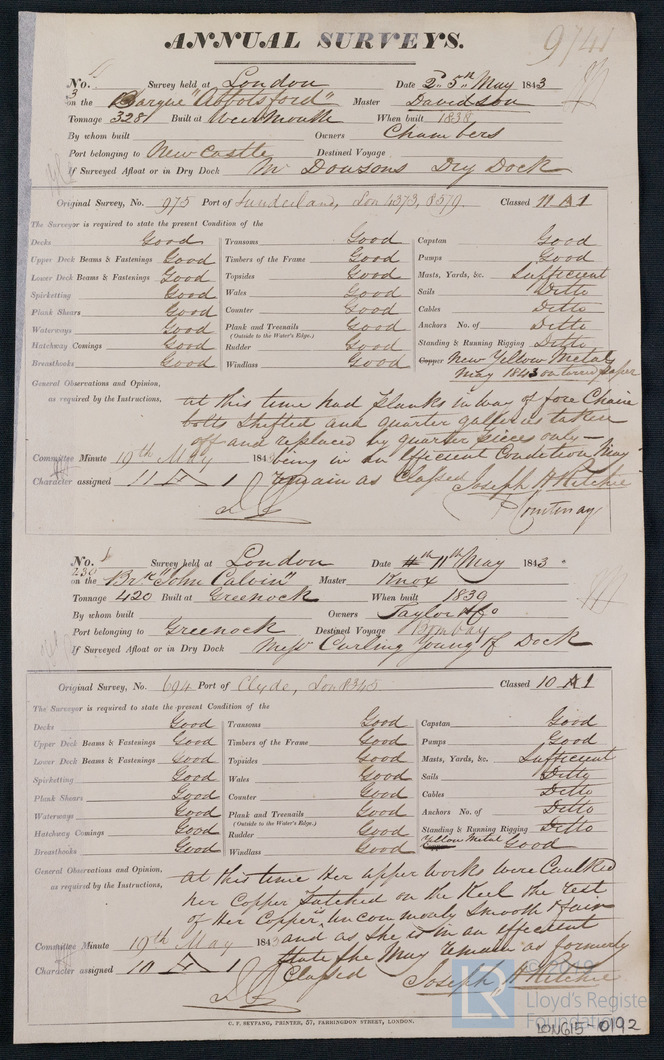 ANNUAL SURVEYS.
9741
No. 3 Survey held at London Date 2d 5th May 1843
on the Barque "Abbotsford" Master Davidson
Tonnage 328 Built at Wearmouth When built 1838
By whom built Owners Chambers
Port belonging to Newcastle Destined Voyage
If Surveyed Afloat or in Dry Dock Mr Dowsons Dry Dock
Original Survey, No. 975 Port of Sunderland, Lon 4373, 8579. Classed 11 A 1
The Surveyor is required to state the present Condition of the
Decks Good Transoms Good Capstan Good
Upper Deck Beams & Fastenings Good Timbers of the Frame Good Pumps Good
Lower Deck Beams & Fastenings Good Topsides Good Masts, Yards, &c. Sufficient
Spirketting Good Wales Good Sails Ditto
Plank Shears Good Counter Good Cables Ditto
Waterways Good Plank and Treenails Good Anchors No. of Ditto
(Outside to the Water's Edge.)
Hatchway Comings Good Rudder Good Standing & Running Rigging Ditto
Breasthooks Good Windlass Good Copper New Yellow Metal
May 1843 on tarred paper
General Observations and Opinion,
as required by the Instructions,
At this time had planks in way of fore Chain
bolts shifted and quarter galleries taken
off and replaced by quarter pieces only —
being in an Efficient Condition May
remain as Classed Joseph H Ritchie
Courtenay
Committee Minute 19th May 1843
Character assigned 11 A 1
No. 230 Survey held at London Date 4th 11th May 1843
on the Brk "John Calvin" Master Knox
Tonnage 420 Built at Greenock When built 1839
By whom built Owners Taylor & Co
Port belonging to Greenock Destined Voyage Bombay
If Surveyed Afloat or in Dry Dock Messrs Curling Young & Dock
Original Survey, No. 694 Port of Clyde, Lon 8345 Classed 10 A 1
The Surveyor is required to state the present Condition of the
Decks Good Transoms Good Capstan Good
Upper Deck Beams & Fastenings Good Timbers of the Frame Good Pumps Good
Lower Deck Beams & Fastenings Good Topsides Good Masts, Yards, &c. Sufficient
Spirketting Good Wales Good Sails Ditto
Plank Shears Good Counter Good Cables Ditto
Waterways Good Plank and Treenails Good Anchors No. of Ditto
(Outside to the Water's Edge.)
Hatchway Comings Good Rudder Good Standing & Running Rigging Ditto
Breasthooks Good Windlass Good Yellow Metal Good
General Observations and Opinion,
as required by the Instructions,
At this time Her upper works were Caulked
her Copper Patched on the Keel the rest
of Her Copper uncommonly Smooth & fair
and as she is in an efficient
state she May remain as formerly
Classed Joseph H Ritchie
Committee Minute 19th May 1843
Character assigned 10 A 1
C. F. SEYFANG, PRINTER, 57, FARRINGDON STREET, LONDON.
LR
Lloyd's Register
Foundation
LON615-0192